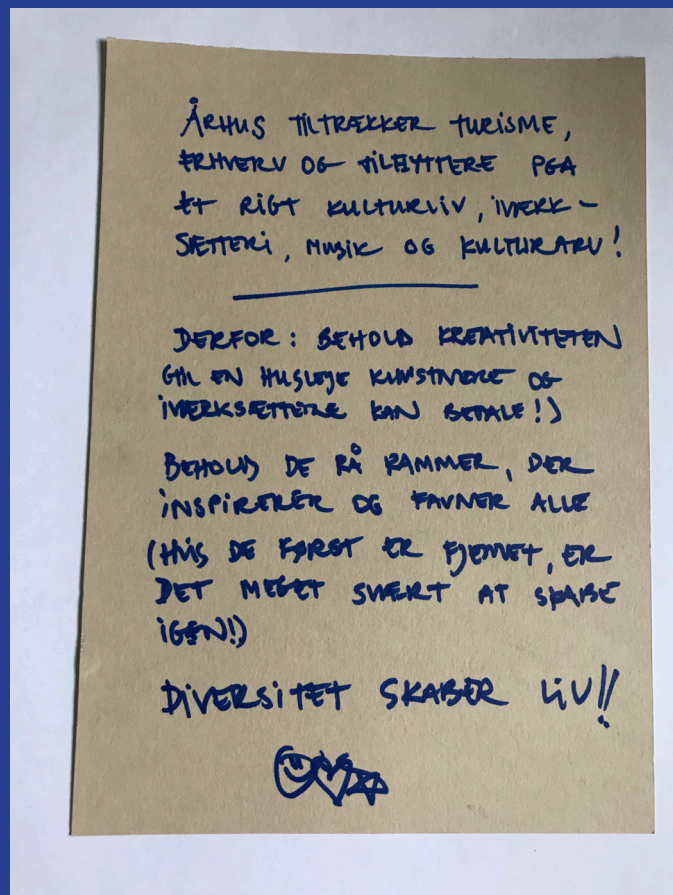 ÅRHUS TILTRÆKKER TURISME,
ERHVERV OG TILFLYTTERE PGA
ET RIGT KULTURLIV, IVÆRK-
SÆTTERI, MUSIK OG KULTURARV!
DERFOR: BEHOLD KREATIVITETEN
(TIL EN HUSLEJE KUNSTNERE OG
IVÆRKSÆTTERE KAN BETALE!)
BEHOLD DE RÅ RAMMER, DER
INSPIRERER OG FAVNER ALLE
(HVIS DE FØRST ER FJERNET, ER
DET MEGET SVÆRT AT SKABE
IGEN!)
DIVERSITET SKABER LIV!!